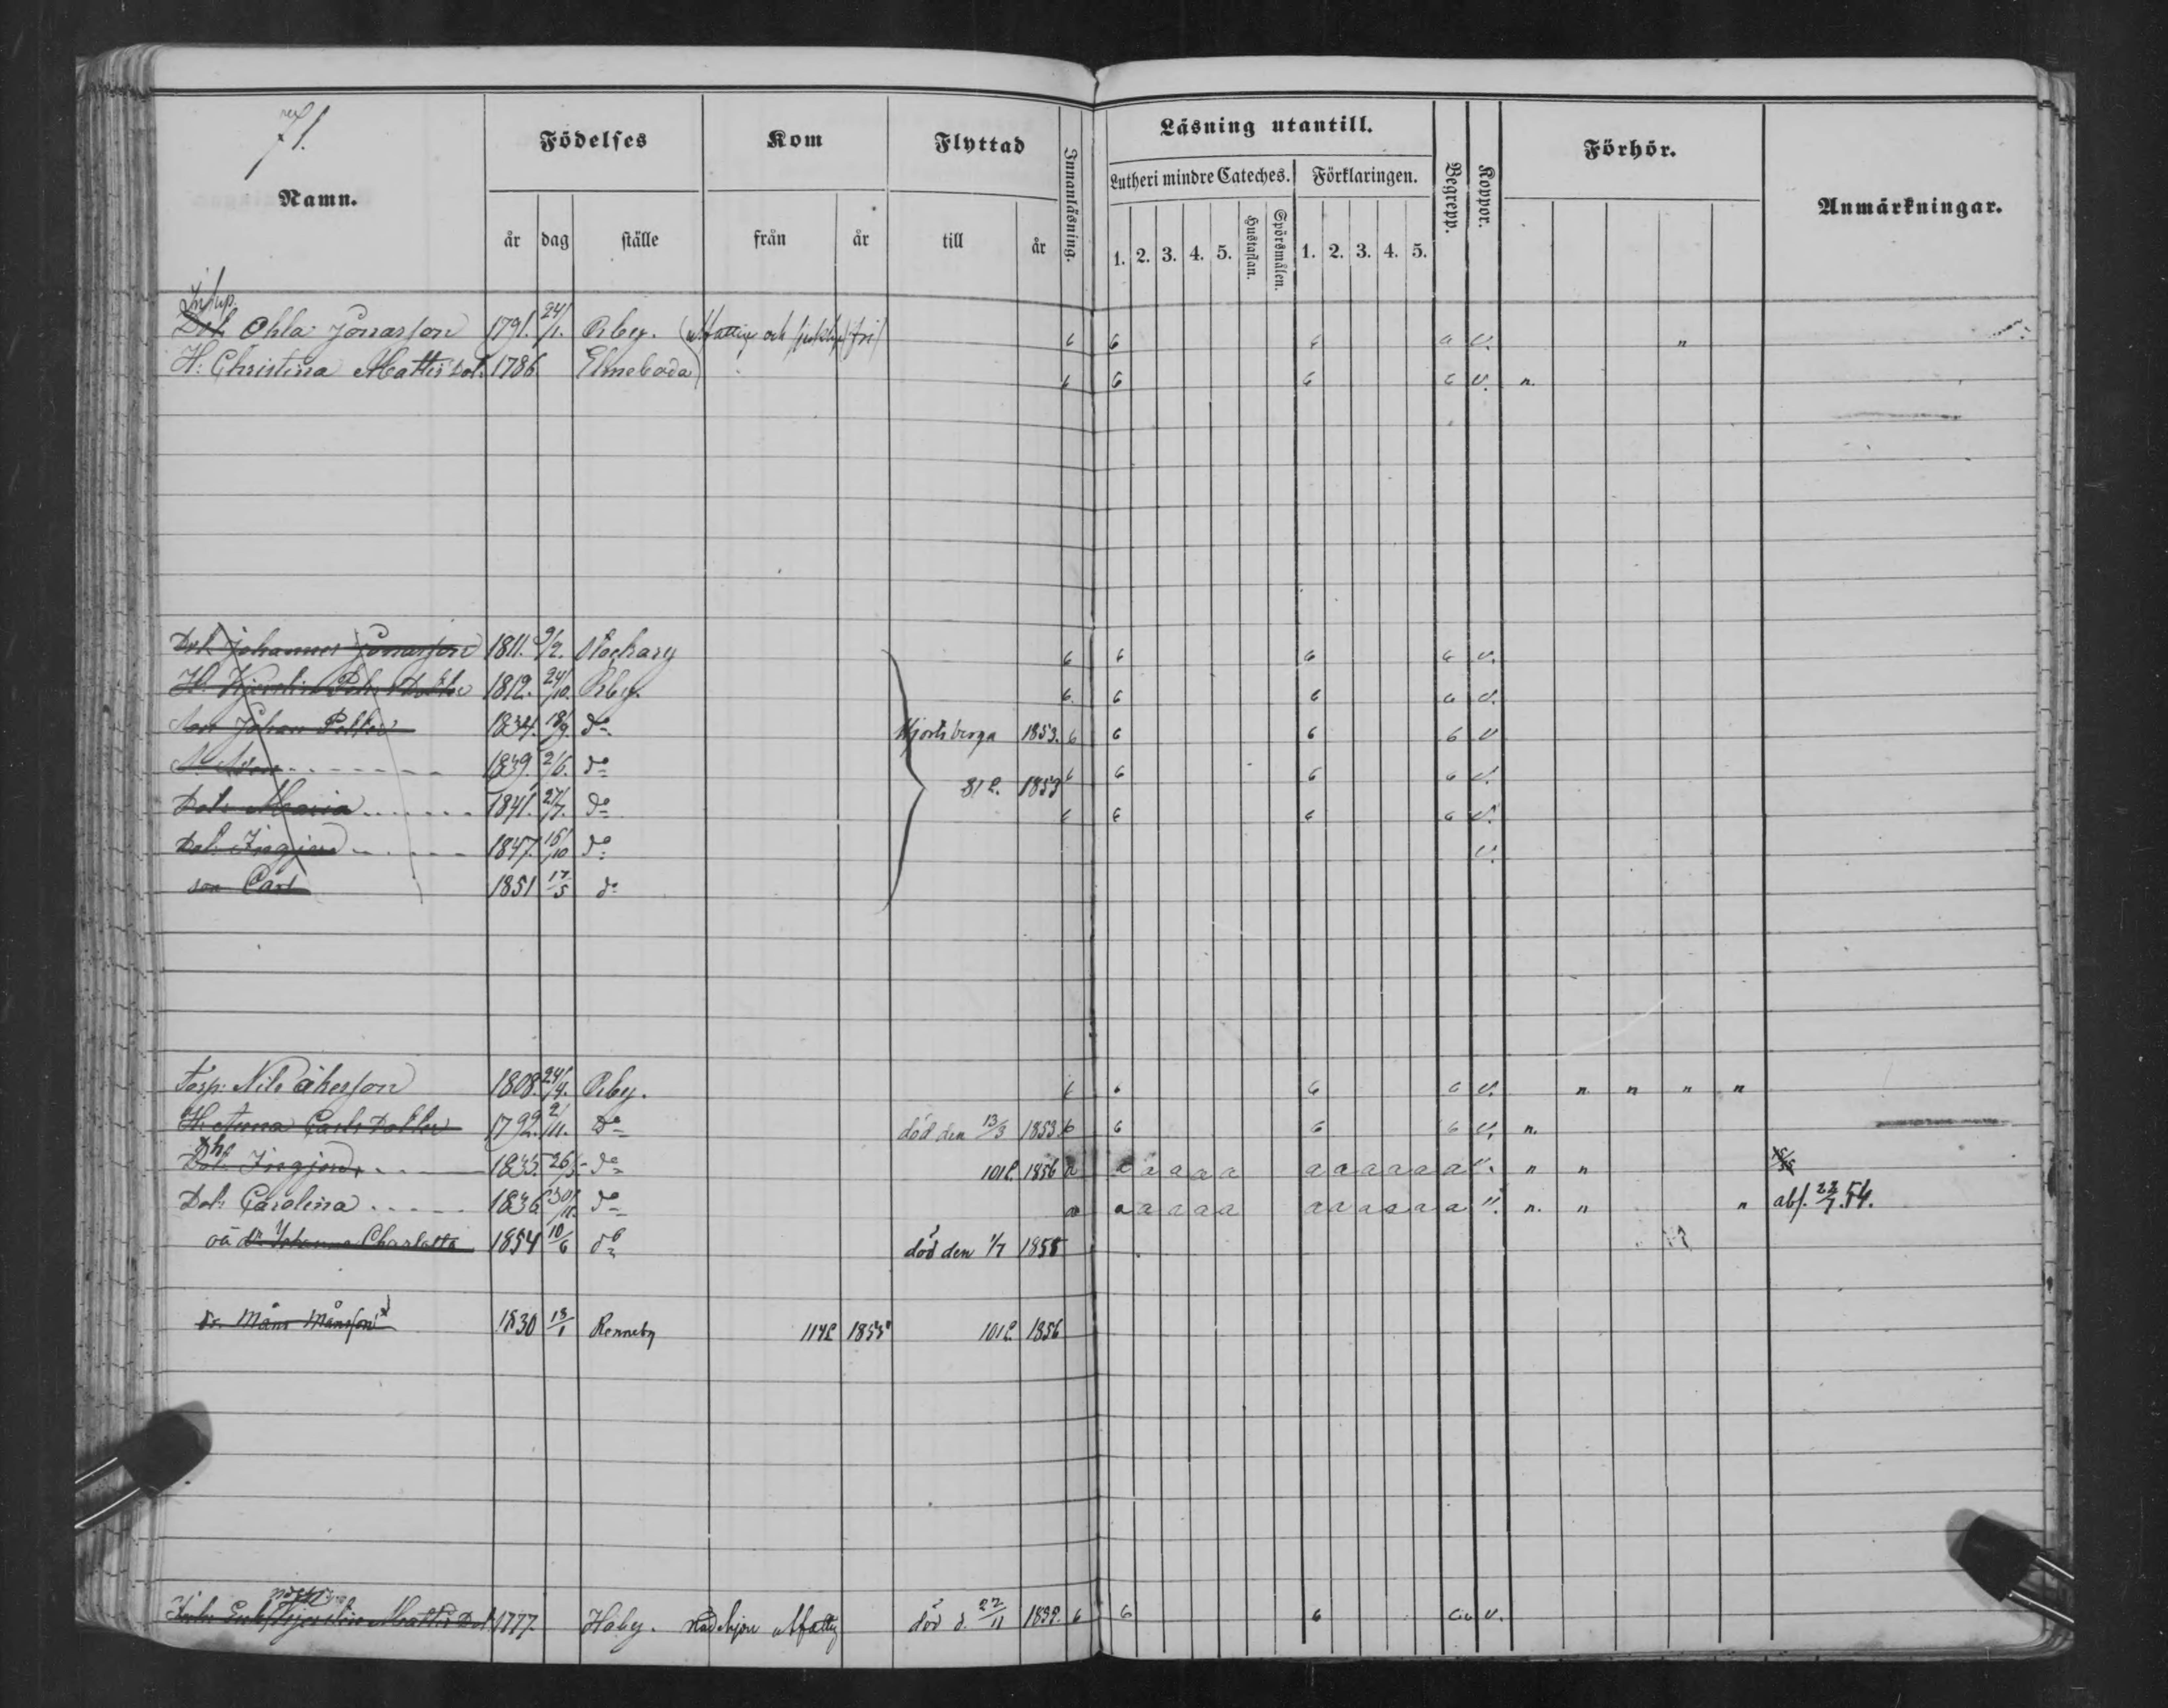 71.
Namn.
Födelses
år dag ställe
Kom
från år
Flyttad
till år
Innanläsning.
Läsning utantill.
Lutheri mindre Cateches.
1. 2. 3. 4. 5. Hustaflan. Spörsmålen.
Förklaringen.
1. 2. 3. 4. 5.
Begrepp.
Koppor.
Förhör.
Anmärkningar.
Ohla Jonasson 1791. 24/1. Orby. och fri 6 6 6 a v. "
H. Christina Mattis Dot. 1786. Elmeboda 6 6 6 6 v. n.
Dok Johannes Jonasson 1811. 9/2. 6 6 6 6 v.
H. Kjerstin Pehrs Dotter 1812. 24/10. Orby. 6 6 6 6 v.
Son Johan Petter 1834. 18/9. do Hjortsberga 1853. 6 6 6 6 v
S. Sven 1839. 2/6. do 6 6 6 6 v.
81 l. 1853
Dot. Maria 1841. 27/7. do 6 6 6 6 v.
Dot. Ingjerd 1847. 16/10 do v.
son Carl 1851 17/5 do
Torp. Nils Åkesson 1808. 24/4. Orby. 6 6 6 6 v. n n n n
H. Anna Carls Dotter 1792. 2/11. Do död den 13/3 1853. 6 6 6 6 v. n.
Dot. Ingjerd 1833. 26/5 do 101 l. 1856 a a a a a a a a a a a a v. n n
Dot. Carolina 1836. 30/11. do a a a a a a a a a a a a v. n. n n abs. 23/7 54.
oä dr Johanna Charlotta 1854 10/6 do död den 1/7 1855
dr. Måns Månsson 1830 13/1 Ronneby 114 l 1855 101 l. 1856
Enk. Kjerstin Mattis Dot 1777. Hoby. utfattig död d. 27/11 6 6 6 v.